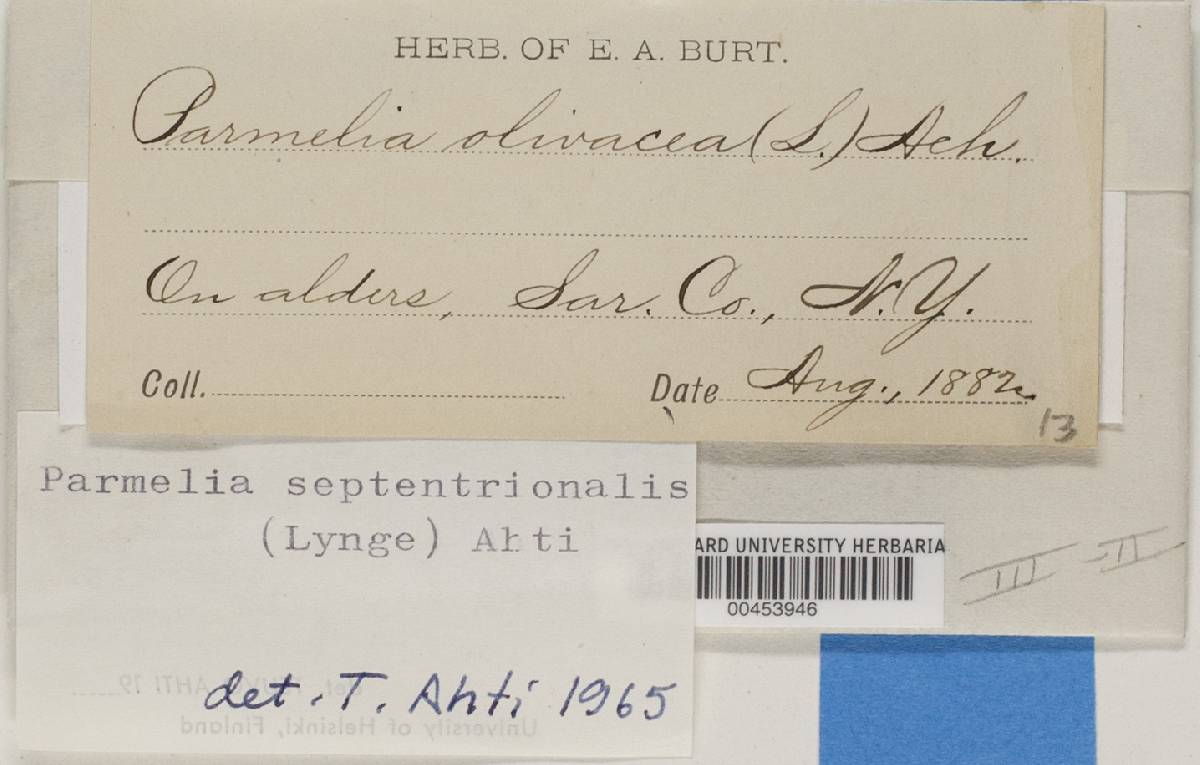 HERB. OF E. A. BURT.
Parmelia olivacea (L.) Ach.
On alders, Sar. Co., N.Y.
Coll. Date Aug., 1882
13
Parmelia septentrionalis
(Lynge) Ahti
det. T. Ahti 1965
AHTI 19
University of Helsinki, Finland
ARD UNIVERSITY HERBARIA
00453946
III - II